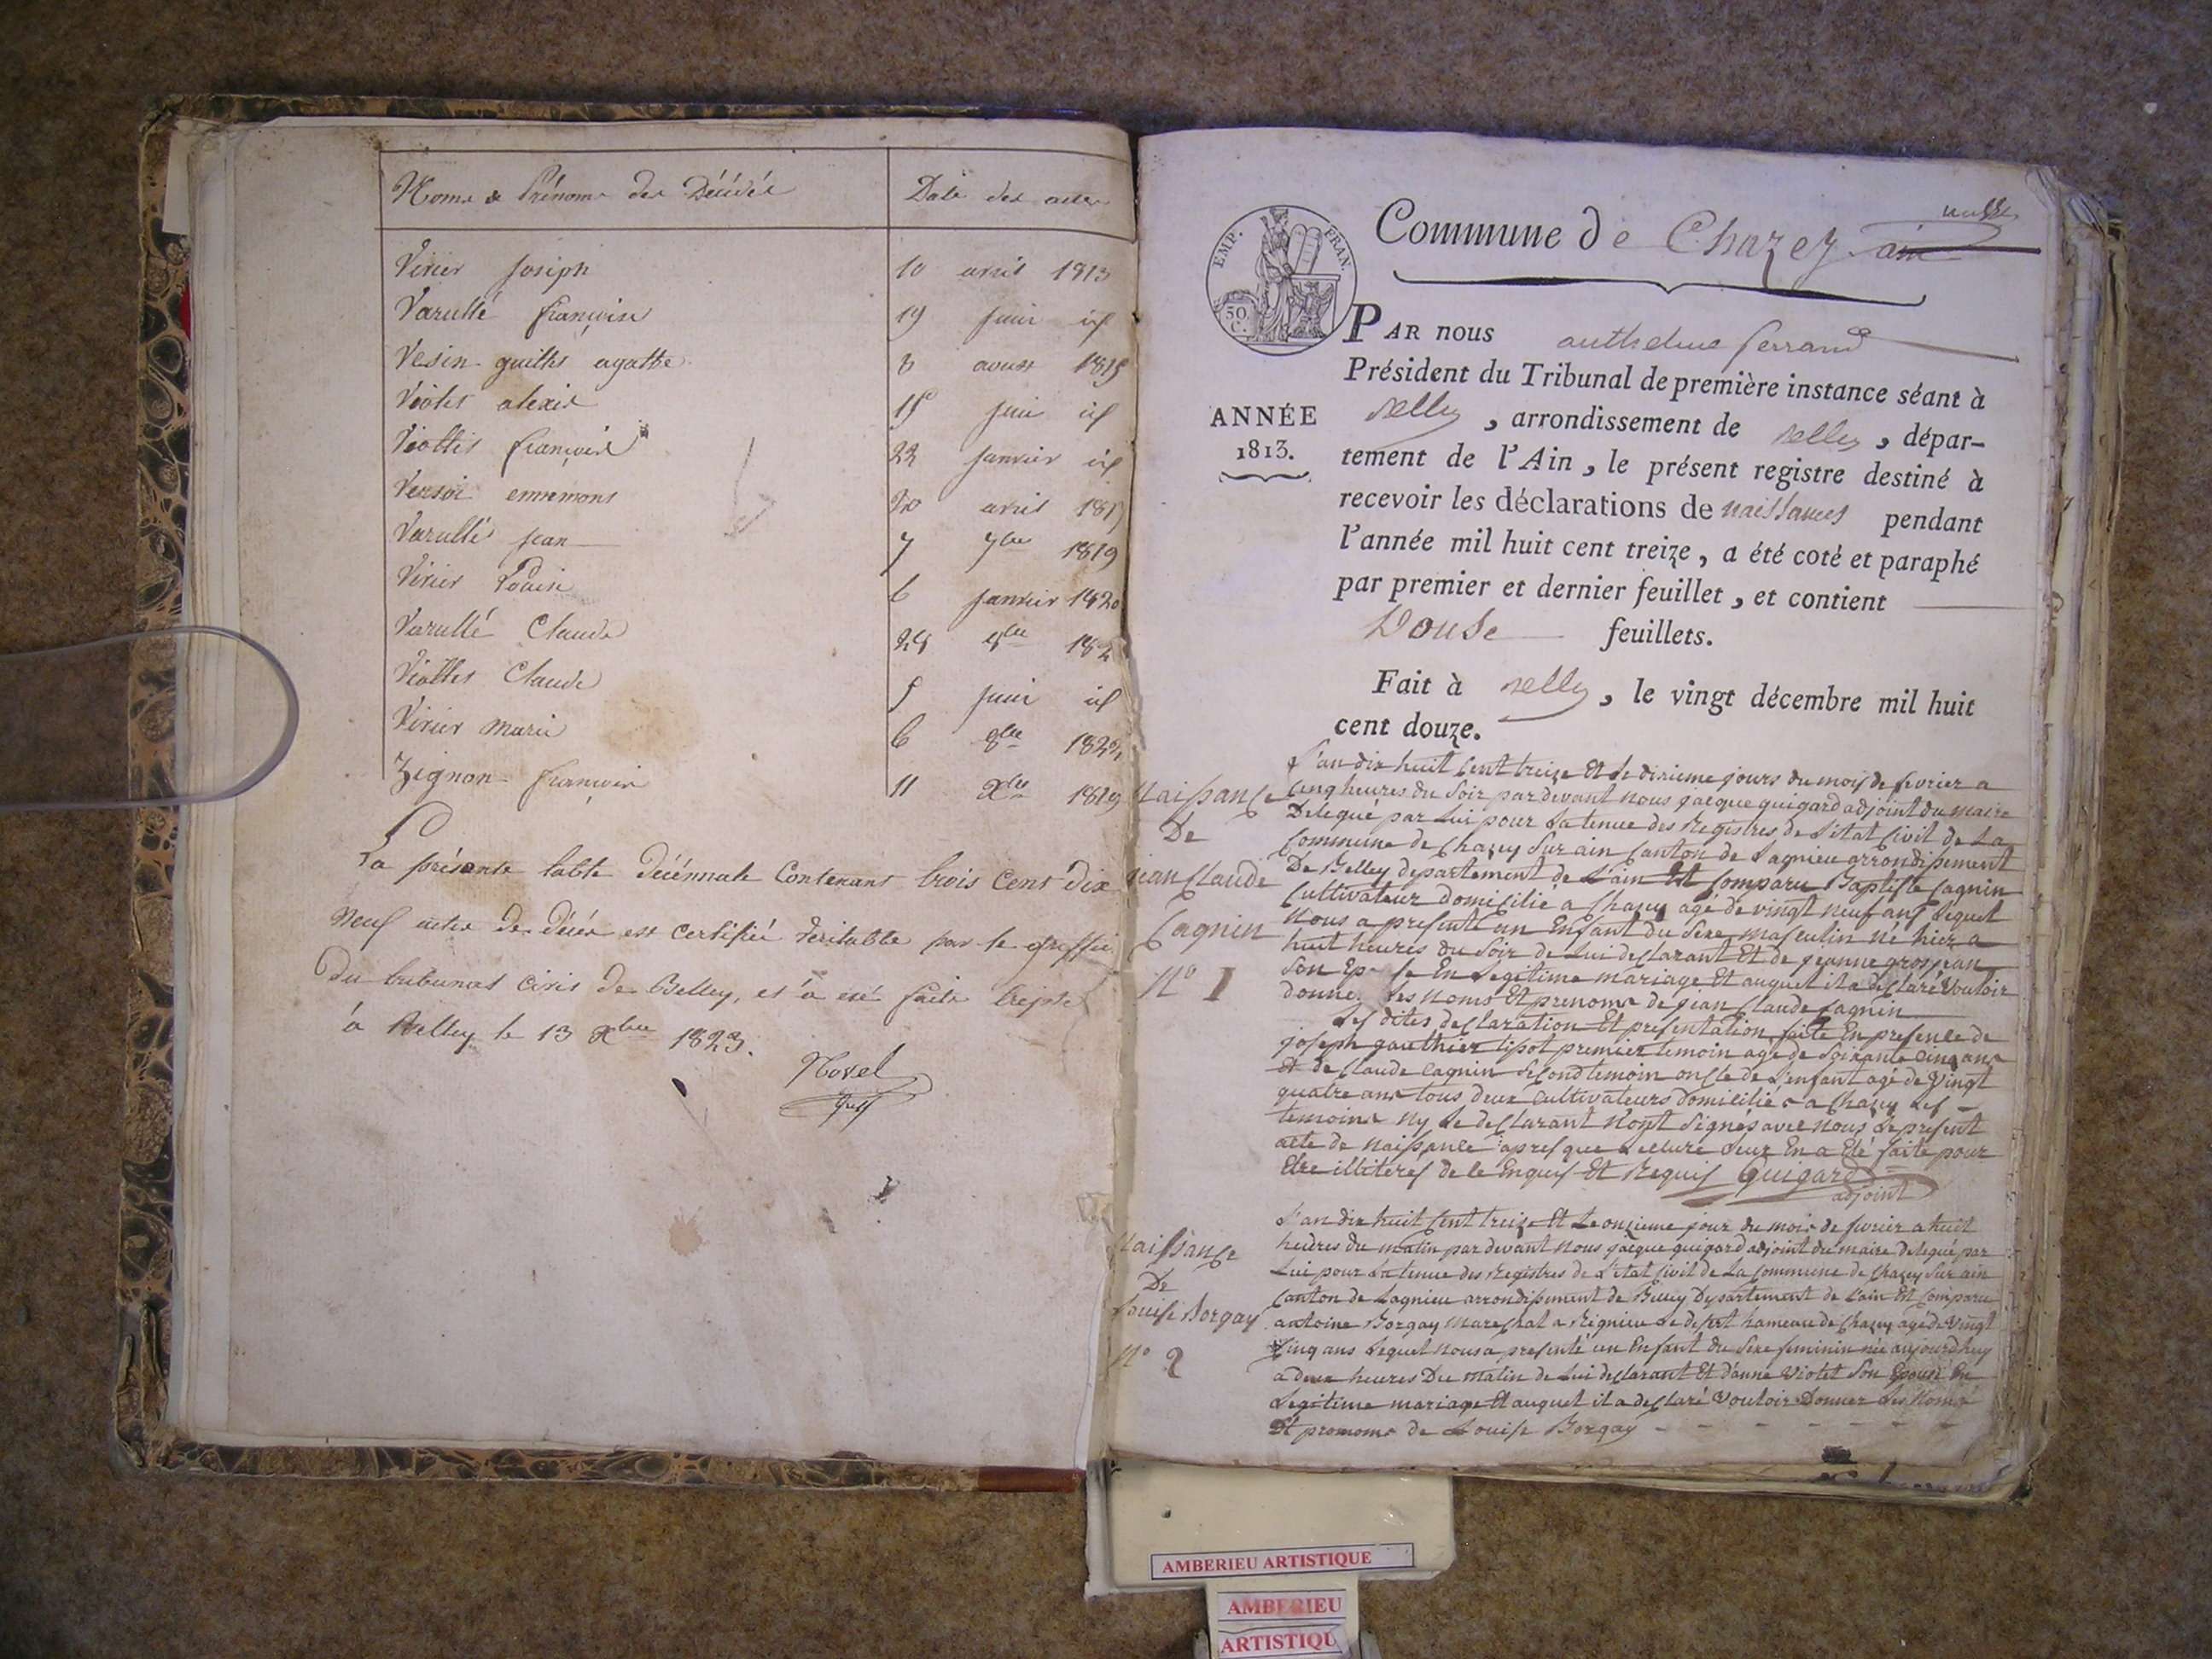 Noms & Prénoms des Décédés
Date des actes
Virier Joseph 10 avril 1813
Varullé françoise 19 juin id
Vesin guilles agathe 8 1815
Violet alexis 15 juin id
Viollet françois 22 janvier id
avril
Varullé jean 7 7bre 1819
Virier Louise 6 janvier 1820
Varullé Claude
Viollet Claude 5 juin id
Virier marie 6 8bre 1822
Zignon françois 11 Xbre 1819
La présente table Décénnale Contenant trois Cent Dix
Neuf actes de Décès est certifiée véritable par le greffier
Du tribunal civil de Belley, et a été faite triple
à Belley le 13 Xbre 1823.
Novel
Greff
EMP. FRAN.
50.
C.
Commune de Chazey ain
ANNÉE
1813.
PAR nous anthelme ferrand
Président du Tribunal de première instance séant à
Belley, arrondissement de Belley, dépar-
tement de l'Ain, le présent registre destiné à
recevoir les déclarations de naissances pendant
l'année mil huit cent treize, a été coté et paraphé
par premier et dernier feuillet, et contient
Douse feuillets.
Fait à Belley, le vingt décembre mil huit
cent douze.
Naissance
De
jean Claude
Cagnin
N° 1
L'an dix huit cent treize Et le dixieme jours du mois de fevrier a
cinq heures du soir par devant nous jacque quigard adjoint du maire
Delegué par Lui pour La tenue des Registres de L'état Civil de La
Commune de Chazey Sur ain Canton de Lagnieu arrondissement
De Belley departement de L'ain Est Comparu Baptiste Cagnin
Cultivateur domicilié a Chazey agé de vingt neuf ans Lequel
Nous a presenté un Enfant du Sexe masculin né hier a
huit heures du Soir de Lui declarant Et de jeanne grosjean
Son Epouse En Legitime mariage Et auquel il a declaré Vouloir
donner Les noms Et prenoms de jean Claude Cagnin
Les dites declaration Et presentation faite En presence de
joseph gauthier tissot premier temoin agé de Soixante cinq ans
Et de Claude Cagnin Second temoin oncle de L'enfant agé de Vingt
quatre ans tous deux Cultivateurs Domiciliés a Chazey Les
temoins Ny Le declarant N'ont Signés avec nous Le present
acte de naissance apres que Lecture Leur En a Eté faite pour
Etre illiteres de le Enquis Et Requis Quigard
adjoint
Naissance
De
Louise Borgay
N° 2
L'an dix huit Cent treize Et Le onzieme jour du mois de fevrier a huit
heures du matin par devant nous jacque quigard adjoint du maire Delegué par
Lui pour La tenue des Registres de L'état Civil de La Commune de Chazey Sur ain
Canton de Lagnieu arrondissement de Belley Departement de L'ain Est Comparu
antoine Borgay Marechal a Rignieu Le desert hameau de Chazey agé de Vingt
Cinq ans Lequel nous a presenté un Enfant du Sexe feminin née aujourdhuy
a deux heures Du matin de Lui declarant Et d'anne Violet Son Epouse En
Legitime mariage Et auquel il a declaré Vouloir Donner Les Noms
Et prenoms de Louise Borgay
AMBERIEU ARTISTIQUE
AMBERIEU
ARTISTIQU